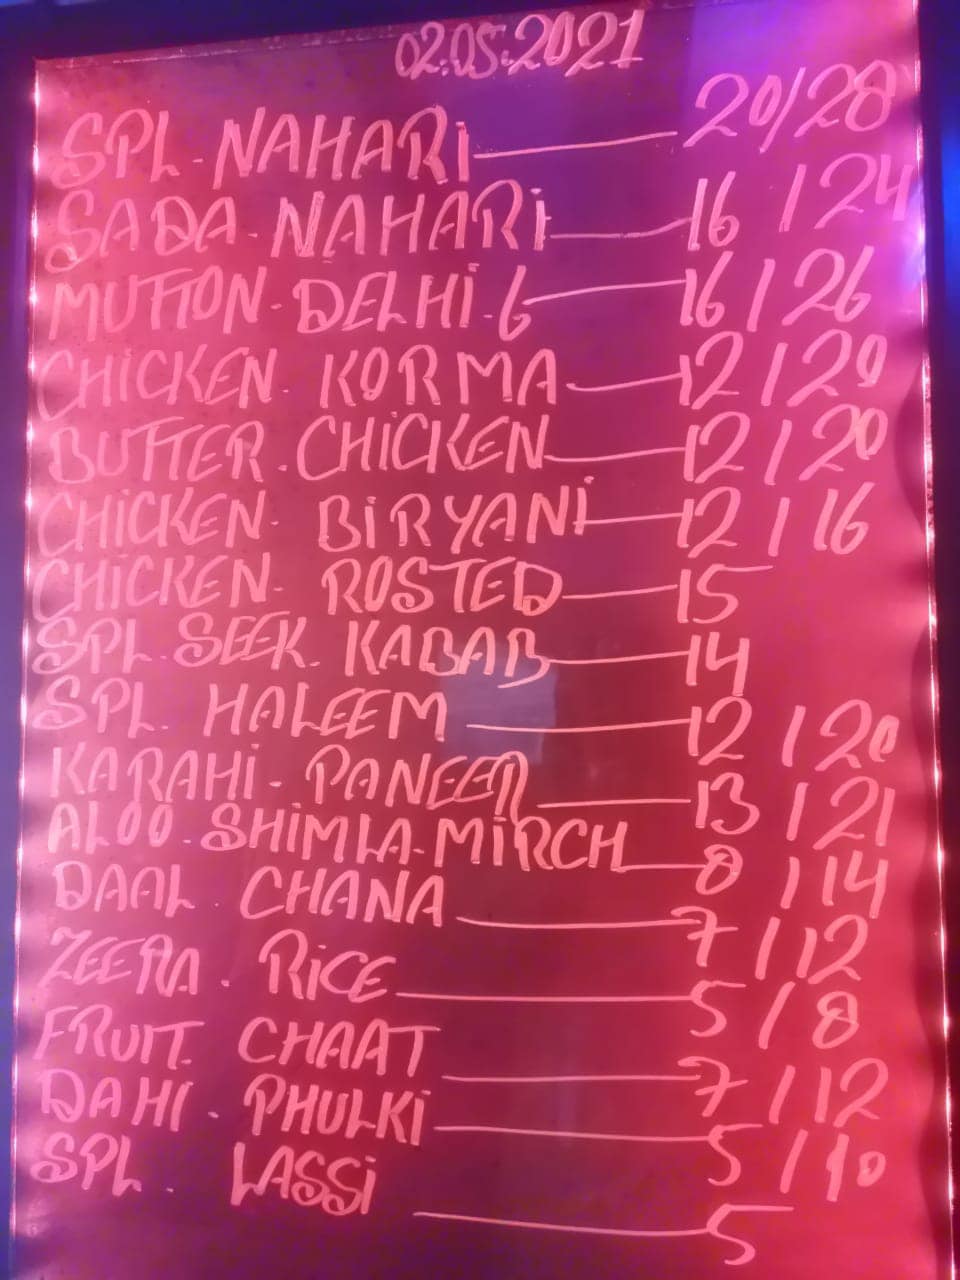 02.05.2021
SPL-NAHARi — 20/28
SADA-NAHARi — 16 / 24
MUTTON-DELHi-6 — 16 / 26
CHiCKEN-KORMA — 12 / 20
BUTTER-CHiCKEN — 12 / 20
CHiCKEN-BiRYANi — 12 / 16
CHiCKEN-ROSTED — 15
SPL-SEEK-KABAB — 14
SPL. HALEEM — 12 / 20
KARAHi-PANEER — 13 / 21
ALOO-SHiMLA-MiRCH — 8 / 14
DAAL-CHANA — 7 / 12
ZEERA-RiCE — 5 / 8
FRUIT-CHAAT — 7 / 12
DAHI-PHULKi — 5 / 10
SPL-LASSi — 5